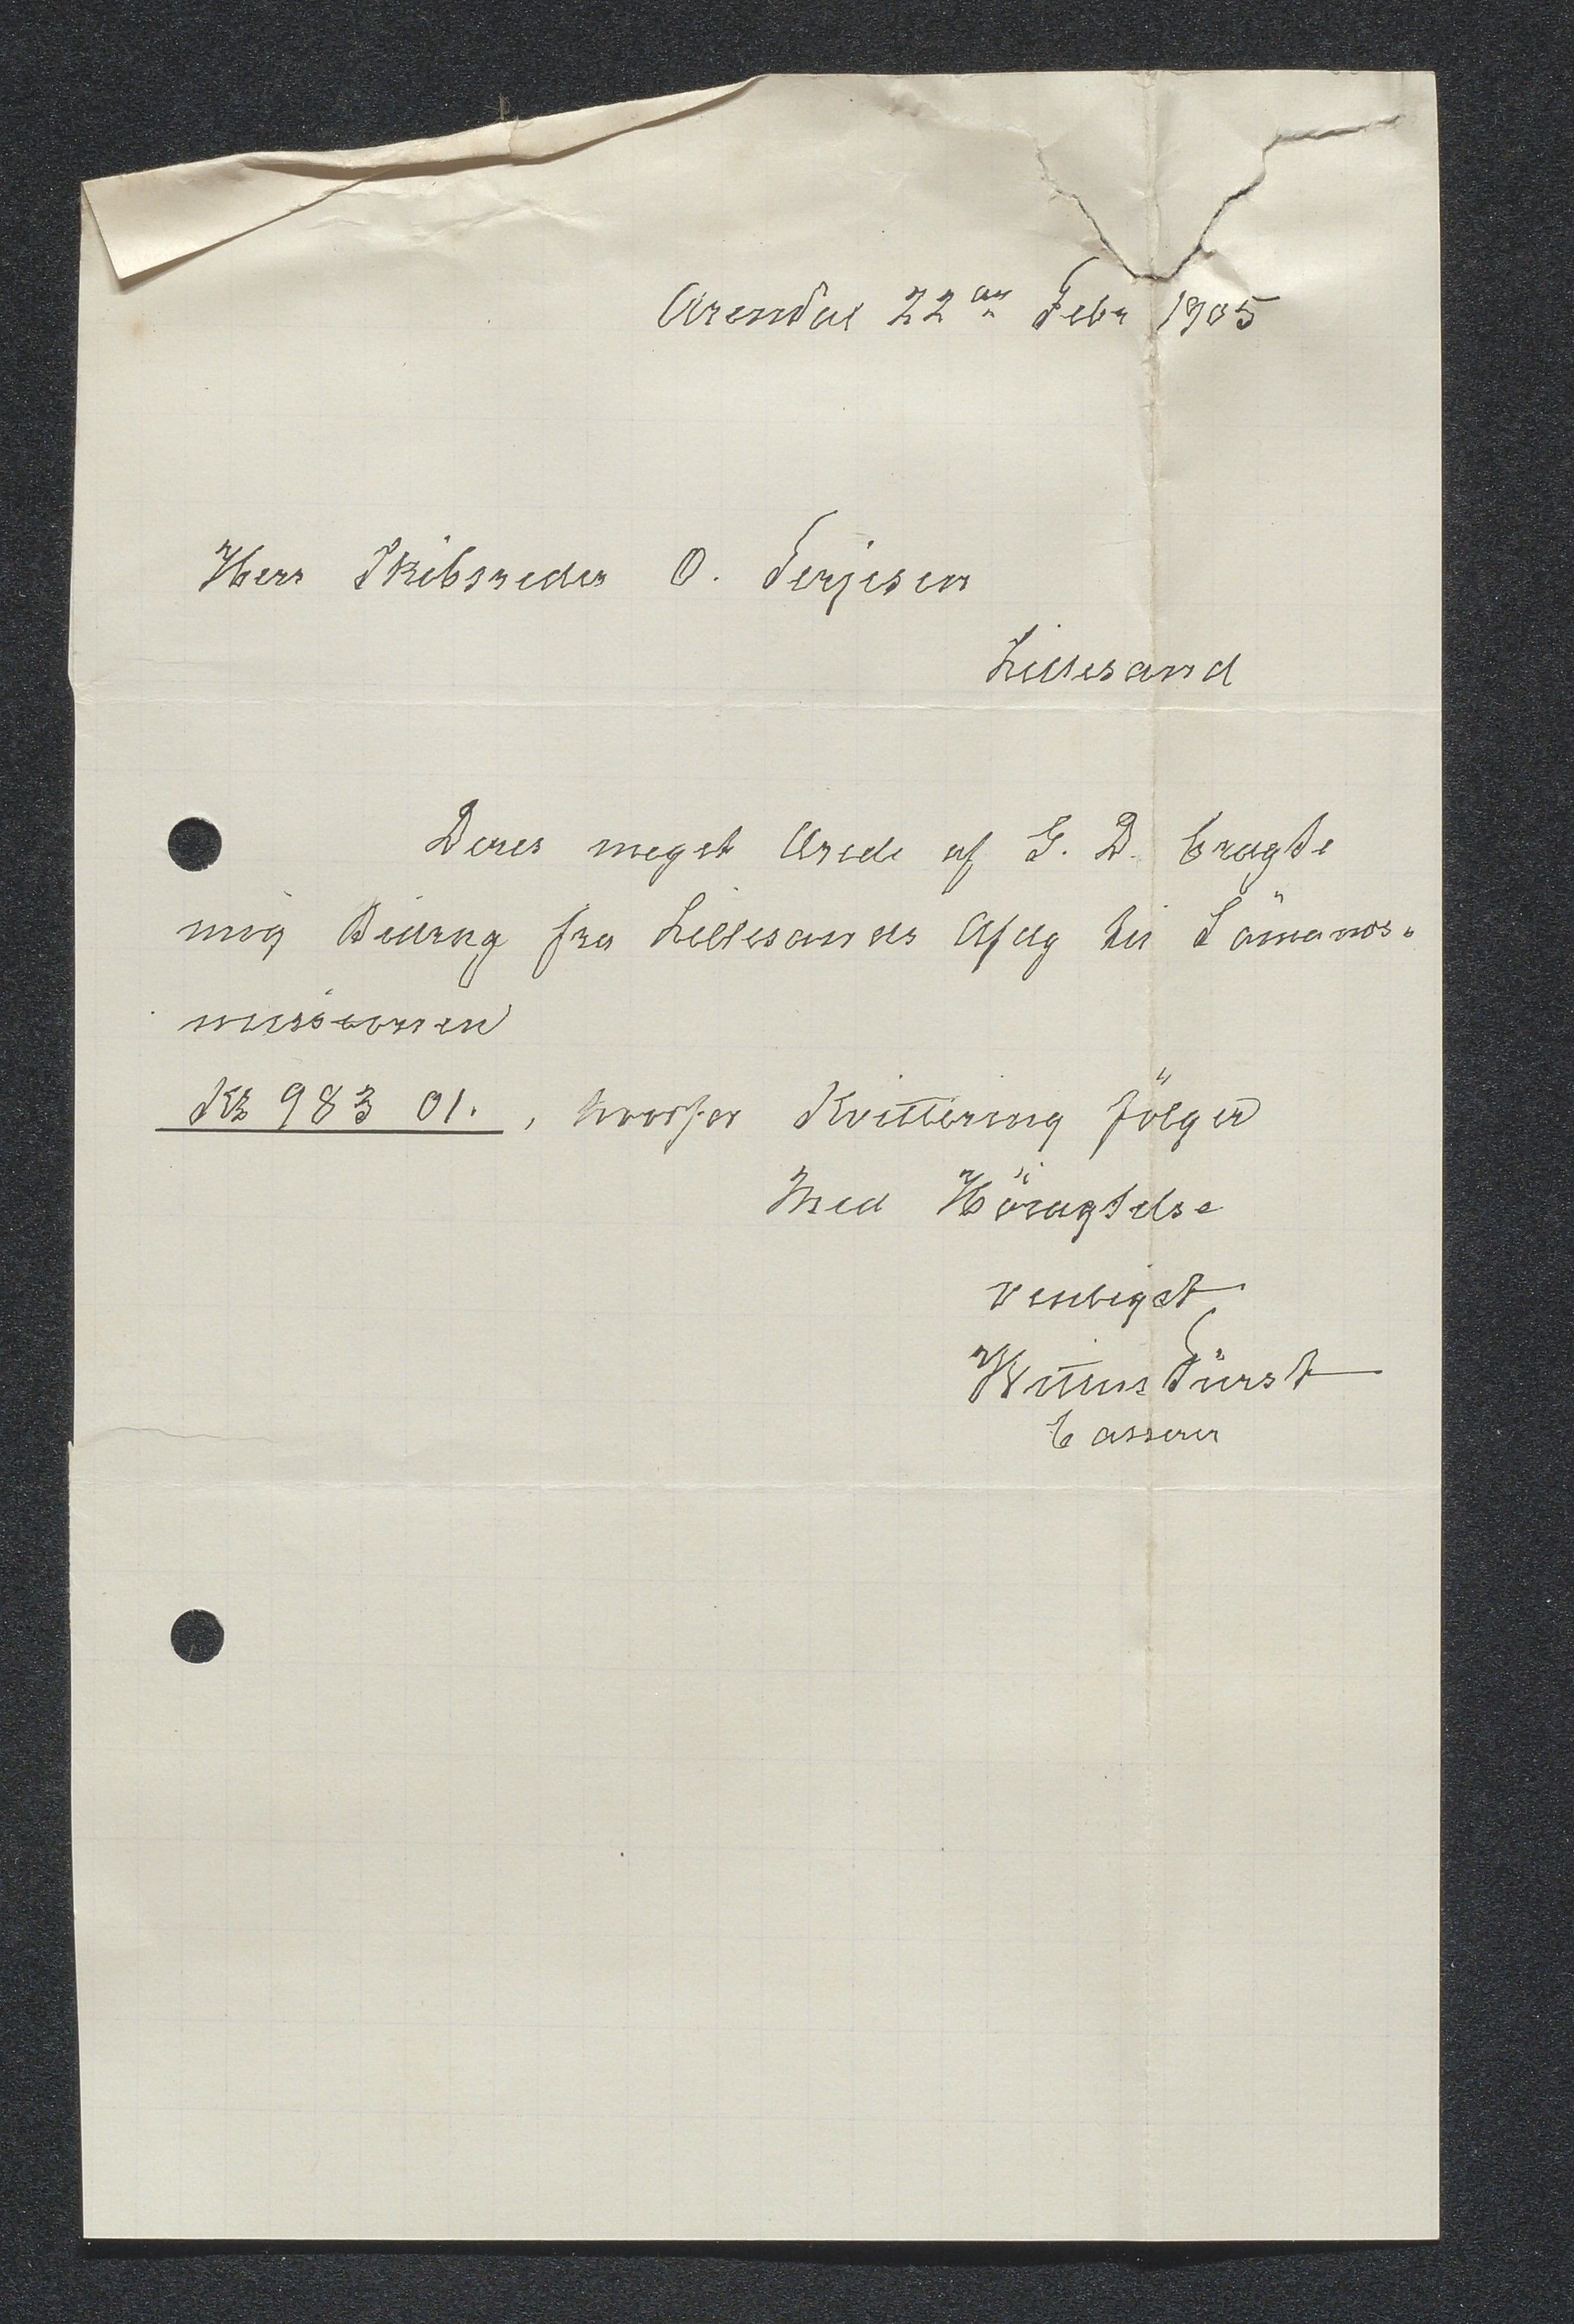 Arendal 22an Febr 1905
Herr Skibsreder O. Terjesen
Lillesand
Deres meget Ærede af G. D. bragte
mig Bidrag fra Lillesands Afdg til Sömands-
missionen
Kr 983 01. , hvorfor Kvittering fölger
Med Höiagtelse
venligst
Wilhm Fürst
Casserer